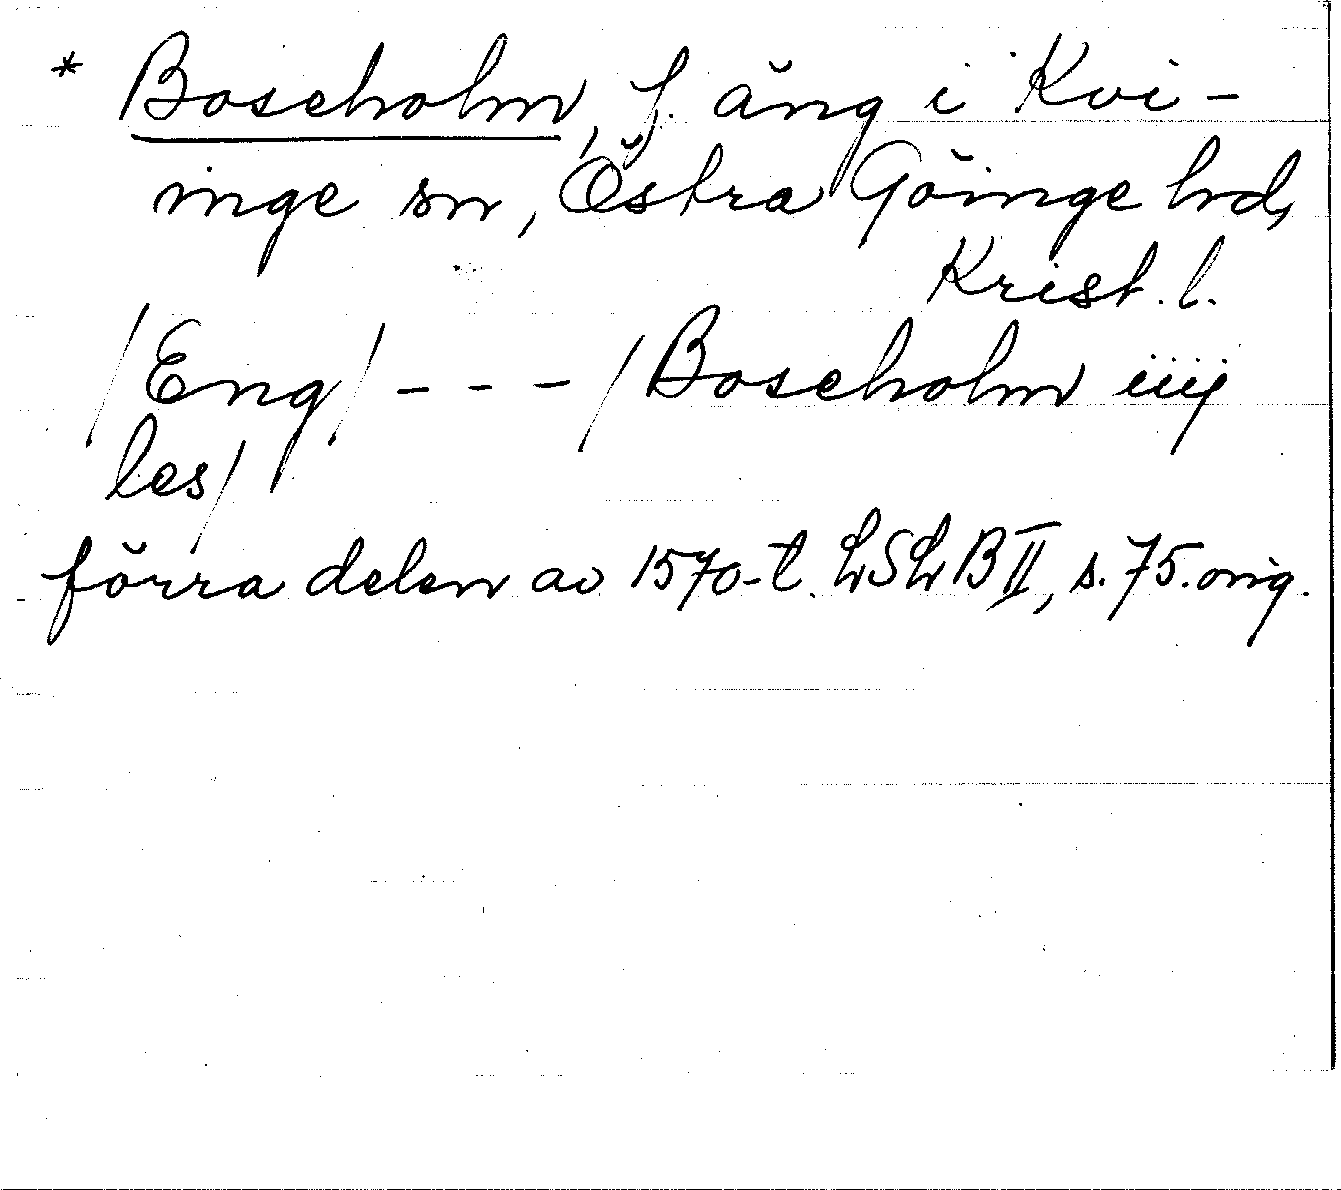 * Boseholm, f. äng i Kvi-
inge sn, Östra Göinge hd,
Krist. l.
/Eng/ - - - /Boseholm iiij
les/
förra delen av 1570-t. LSLB II, s. 75. orig.